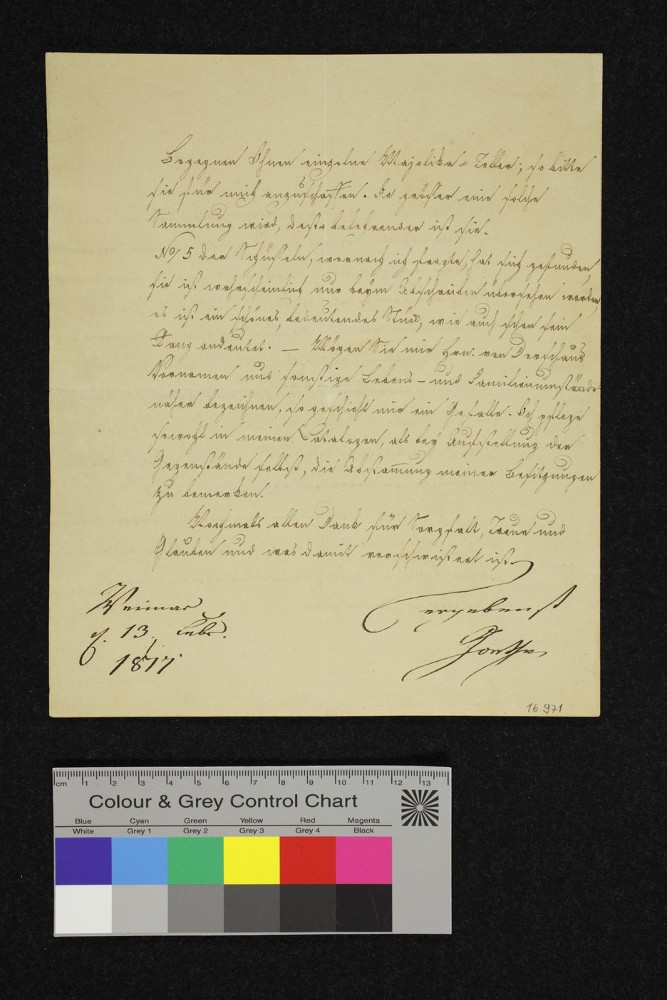 Begegnen Ihnen einzelne Majolika-Teller; so bitte
sie für mich anzuschaffen. Je größer eine solche
Sammlung wird, desto belehrender ist sie.
No 5 der Schüsseln, wornach ich fragte, hat sich gefunden,
sie ist wahrscheinlich nur beym Beschreiben übersehen worden,
es ist ein schönes, bedeutendes Stück, wie auch schon sein
Rang andeutet. — Mögen Sie mir Hrn. von Derschaus
Vornamen und sonstige Lebens- und Familienumstände
näher bezeichnen, so geschieht mir ein Gefalle. Ich pflege
sowohl in meinen Catalogen, als bey Aufstellung der
Gegenstände selbst, die Abstam̅ung meiner Besitzungen
zu bemerken.
Nochmals allen Dank für Sorgfalt, Treue und
Glauben und was damit verschwistert ist.
Weimar
d. 13. Febr.
1817
ergebenst
Goethe
16 971
cm 1 2 3 4 5 6 7 8 9 10 11 12 13
Colour & Grey Control Chart
Blue Cyan Green Yellow Red Magenta
White Grey 1 Grey 2 Grey 3 Grey 4 Black